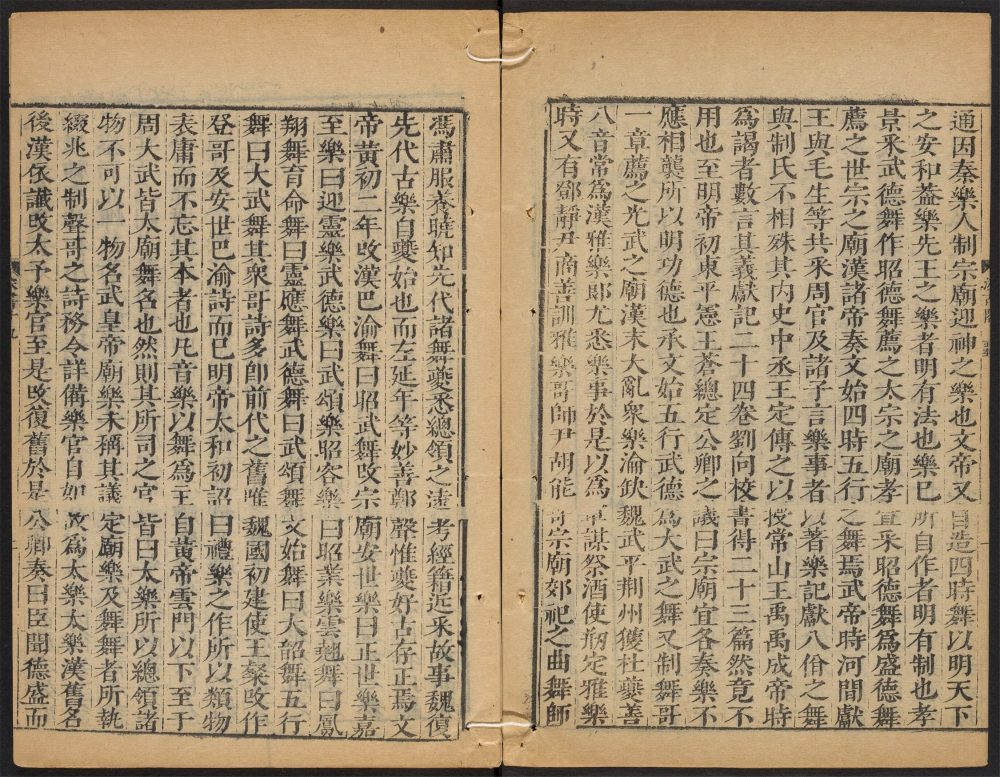 通因秦樂人制宗廟迎神之樂也文帝又自造四時舞以明天下
之安和葢樂先王之樂者明有法也樂巳所自作者明有制也孝
景采武德舞作昭德舞薦之太宗之廟孝宣采昭德舞爲盛德舞
薦之世宗之廟漢諸帝奏文始四時五行之舞焉武帝時河間獻
王與毛生等共采周官及諸子言樂事者以著樂記獻八佾之舞
與制氏不相殊其內史中丞王定傳之以授常山王禹禹成帝時
爲謁者數言其義獻記二十四卷劉向校書得二十三篇然竟不
用也至明帝初東平憲王蒼總定公卿之議曰宗廟宜各奏樂不
應相襲所以明功德也承文始五行武德爲大武之舞又制舞哥
一章薦之光武之廟漢末大亂衆樂淪缺魏武平荆州獲杜夔善
八音常爲漢雅樂郎尤悉樂事於是以爲軍謀祭酒使刱定雅樂
時又有鄧靜尹商善訓雅樂哥師尹胡能哥宗廟郊祀之曲舞師
馮肅服養曉知先代諸舞夔悉總領之遠考經籍近采故事魏復
先代古樂自夔始也而左延年等妙善鄭聲惟夔好古存正焉文
帝黃初二年改漢巴渝舞曰昭武舞改宗廟安世樂曰正世樂嘉
至樂曰迎靈樂武德樂曰武頌樂昭容樂曰昭業樂雲翹舞曰鳳
翔舞育命舞曰靈應舞武德舞曰武頌舞文始舞曰大韶舞五行
舞曰大武舞其衆哥詩多卽前代之舊唯魏國初建使王粲改作
登哥及安世巴渝詩而巳明帝太和初詔曰禮樂之作所以類物
表庸而不忘其本者也凡音樂以舞爲主自黃帝雲門以下至于
周大武皆太廟舞名也然則其所司之官皆曰太樂所以總領諸
物不可以一物名武皇帝廟樂未稱其議定廟樂及舞舞者所執
綴兆之制聲哥之詩務令詳備樂官自如故爲太樂太樂漢舊名
後漢依讖改太予樂官至是改復舊於是公卿奏曰臣聞德盛而